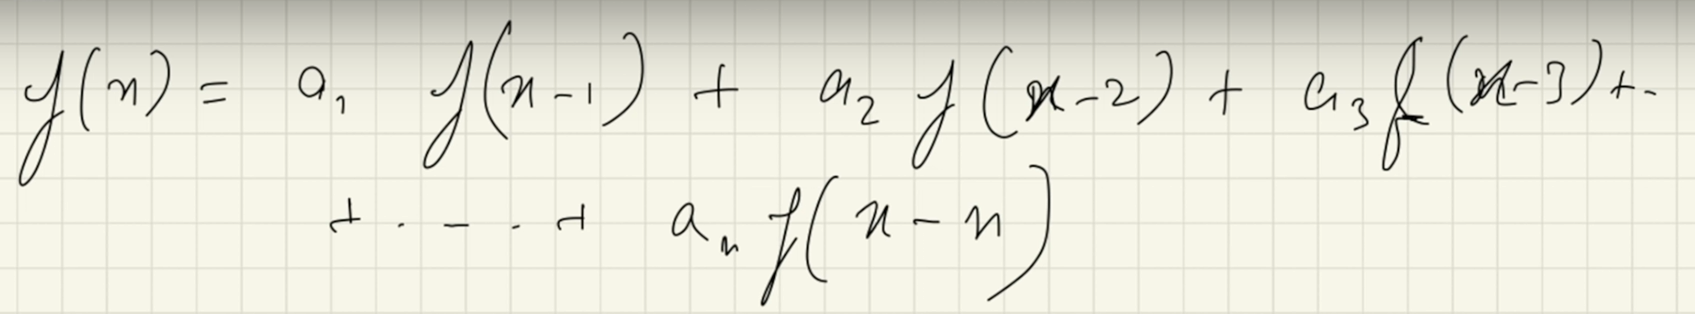 f(n) = a₁ f(n-1) + a₂ f(n-2) + a₃ f(n-3) + -
+ . - . + aₙ f(n-n)